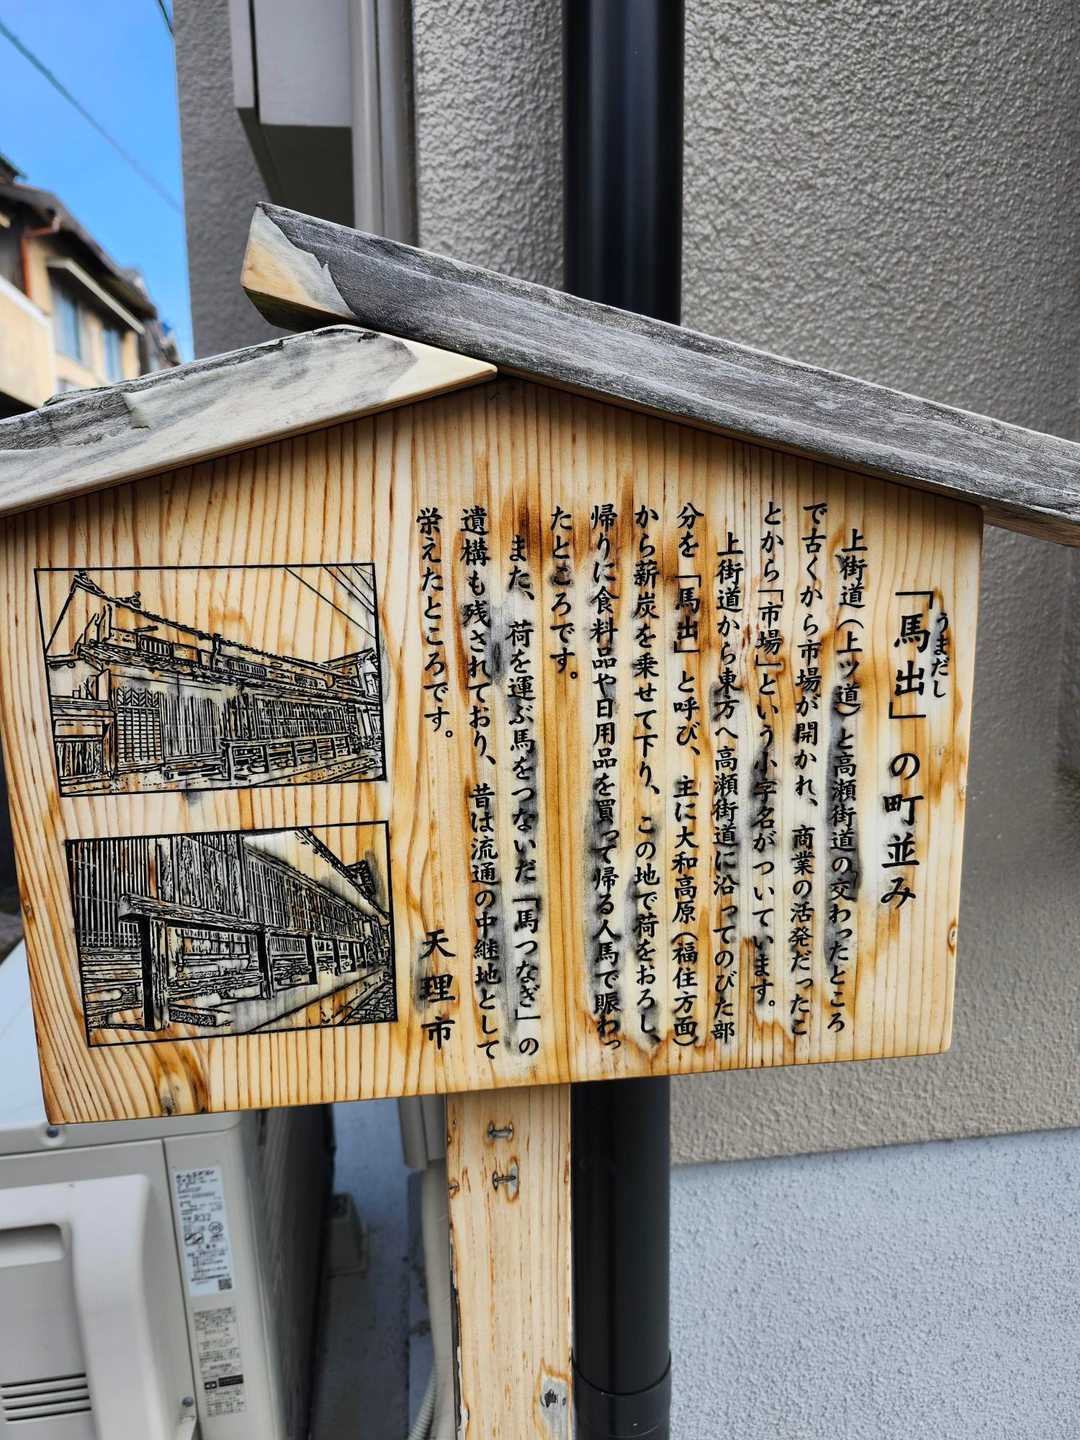 「馬出」の町並み
うまだし
上街道(上ツ道)と高瀬街道の交わったところ
で古くから市場が開かれ、商業の活発だったこ
とから「市場」という小字名がついています。
上街道から東方へ高瀬街道に沿ってのびた部
分を「馬出」と呼び、主に大和高原(福住方面)
から薪炭を乗せて下り、この地で荷をおろし、
帰りに食料品や日用品を買って帰る人馬で賑わっ
たところです。
また、荷を運ぶ馬をつないだ「馬つなぎ」の
遺構も残されており、昔は流通の中継地として
栄えたところです。
天理市
R32